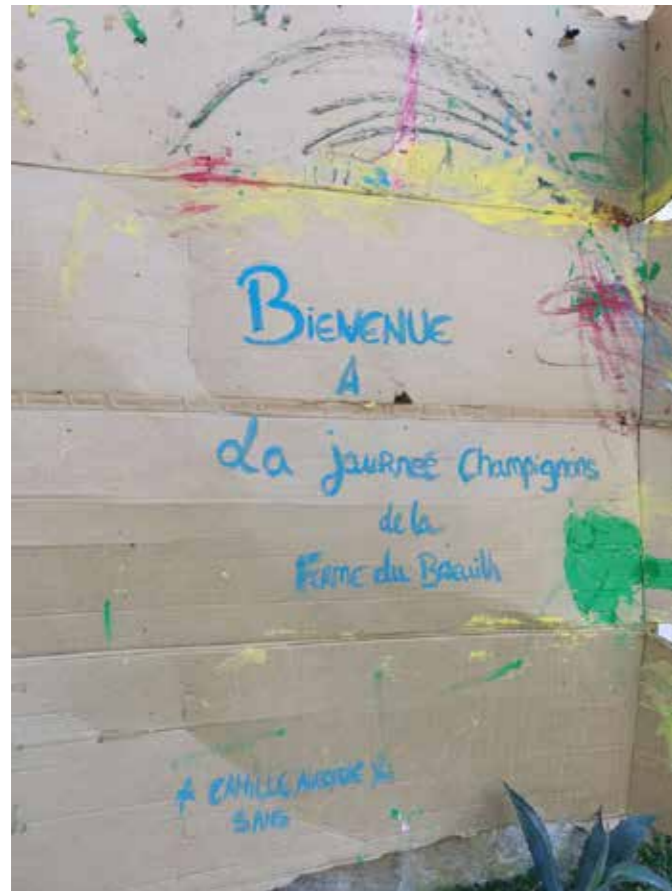 BiENVENUE
A
La jouRNeé Champignons
de la
FERME du BREuilh
CAMILLE,
SANS